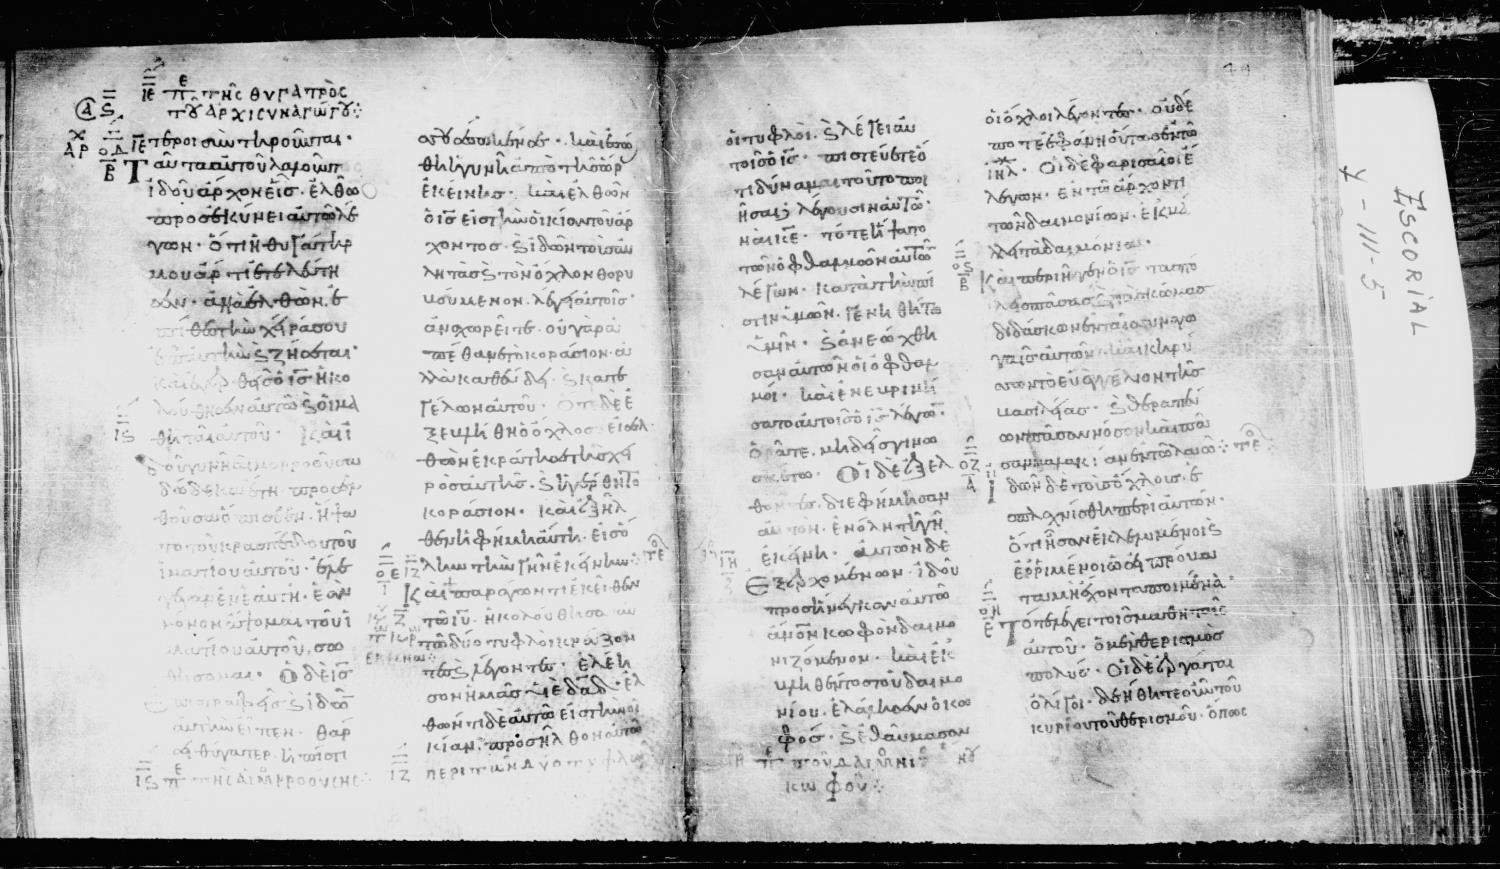 ΙΕ π τῆς θυγατρὸς
τοῦ ἀρχισυναγώγου
τεροι συντηροῦνται·
Ταῦτα αὐτοῦ λαλοῦντ
ἰδοῦ ἄρχων εἷς· ἐλθὼ
προσεκύνει αὐτῶ λέ
γων· ὅτι ἡ θυγάτηρ
μου ἄρτι ἐτελεύτη
σεν· ἀλλὰ ἐλθὼν· ἐ
πίθες τὴν χεῖρά σου
ἐπ αὐτὴν ϗ ζήσεται·
καὶ ἐγερθεὶς ὁ ις ἠκο
λούθησεν αὐτῶ ϗ οἱ μα
θηταὶ αὐτοῦ· Καὶ ἰ
δοὺ γυνὴ αἱμορροοῦσα
δώδεκα ἔτη· προσελ
θοῦσα ὄπισθεν· ἥψα
το τοῦ κρασπέδου του
ἱματίου αὐτοῦ· ἔλε
γε γὰρ ἐν ἑαυτῆ· ἐὰν
μόνον ἅψομαι τοῦ ἱ
ματίου αὐτοῦ, σω
θήσομαι· Ὁ δὲ ις
ἐπιστραφεὶς ϗ ἰδὼ
αὐτὴν εἶπεν· θάρ
σει θύγατερ· ἡ πίστι
ΙϚ π τῆς αἱμορροούσης
σου σέσωκέν σε· καὶ ἐσώ
θη ἡ γυνὴ ἀπὸ τῆς ὥρ
ἐκείνης· καὶ ἐλθὼν
ὁ ις εἰς τὴν οἰκίαν τοῦ ἄρ
χοντος· ϗ ἰδὼν τοὺς αὐ
λητὰς ϗ τὸν ὄχλον θορυ
βούμενον· λέγει αὐτοῖς·
ἀναχωρεῖτε· οὐ γὰρ ἀ
πέθανε τὸ κοράσιον· ἀ
λλὰ καθεύδει· ϗ κατε
γέλων αὐτοῦ· Ὅτε δὲ ἐ
ξεβλήθη ὁ ὄχλος· εἰσελ
θὼν ἐκράτησε τῆς χει
ρὸς αὐτῆς· ϗ ἠγέρθη τὸ
κοράσιον· καὶ ἐξῆλ
θεν ἡ φήμη αὕτη· εἰς ὅ
λην τὴν γῆν ἐκείνην
Καὶ παράγοντι ἐκεῖθεν
τῶ ιυ· ἠκολούθησαν αυ
τῶ δύο τυφλοὶ κράζον
τες ϗ λέγοντες· ἐλέη
σον ἡμᾶς υἱὲ δαδ· ἐλ
θόντι δὲ αὐτῶ εἰς τὴν οἰ
κίαν· προσῆλθον αὐτῶ
ΙΖ περὶ τῶν δύο τυφλω
οἱ τυφλοὶ· ϗ λέγει αὐ
τοῖς ὁ ις· πιστεύετε ὅ
τι δύναμαι τοῦτο ποι
ῆσαι; λέγουσιν αὐτῶ·
ναὶ κε· τότε ἥψατο
τῶν ὀφθαλμῶν αὐτῶν
λέγων· κατὰ τὴν πί
στιν ὑμῶν· γενηθήτω
ὑμῖν· ϗ ἀνεώχθη
σαν αὐτῶν οἱ ὀφθαλ
μοί· καὶ ἐνεβριμή
σατο αὐτοῖς ὁ ις λέγων·
ὁρᾶτε· μηδεὶς γινω
σκέτω· Οἱ δὲ ἐξελ
θόντες· διεφήμησαν
αὐτὸν· ἐν ὅλη τῆ γῆ
ἐκείνη· αὐτῶν δε
Ἐξερχομένων· ἰδου
προσήνεγκαν αὐτῶ
ἄνον κωφὸν δαιμο
νιζόμενον· καὶ ἐκ
βληθέντος του δαιμο
νίου· ἐλάλησεν ὁ κω
φός· ϗ ἐθαύμασαν
ΙΗ π τοῦ δαιμονιζομένου
κωφοῦ
οἱ ὄχλοι λέγοντες· οὐδέ
ποτε ἐφάνη οὕτως ἐν τῶ
ιηλ· Οἱ δὲ φαρισαῖοι ἔ
λεγον· ἐν τῶ ἄρχοντι
τῶν δαιμονίων· ἐκβά
λλει τὰ δαιμόνια·
Καὶ περιῆγεν ὁ ις τας πό
λεις πάσας ϗ τὰς κώμας
διδάσκων ἐν ταῖς συναγω
γαῖς αὐτῶν· καὶ κηρύ
σσων τὸ εὐαγγέλιον τῆς
βασιλείας· ϗ θεραπεύ
ων πᾶσαν νόσον καὶ πᾶσα
μαλακίαν ἐν τῶ λαῶ
Ἰδὼν δὲ τοὺς ὄχλους· ἐ
σπλαγχνίσθη περὶ αὐτῶν·
ὅτι ἦσαν ἐκλελυμένοι ϗ
ἐρριμένοι ὡσεὶ πρόβα
τα μὴ ἔχοντα ποιμένα·
Τότε λέγει τοῖς μαθηταῖς
αὐτοῦ· ὁ μὲν θερισμὸς
πολύς· οἱ δὲ ἐργάται
ὀλίγοι· δεήθητε οὖν του
κυρίου τοῦ θερισμοῦ· ὅπως
44
ESCORIAL
Y - III - 5